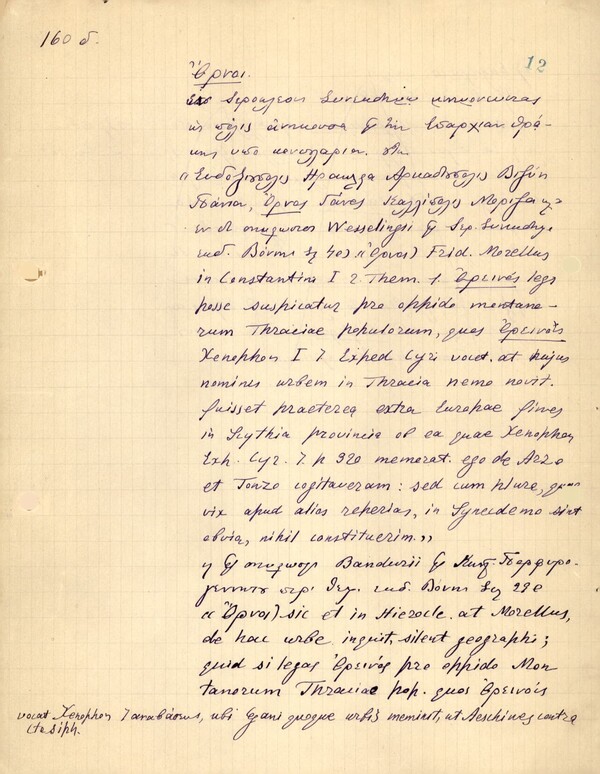 160 δ.
12
Ὄρνοι.
Ἱεροκλέους Συνεκδημ μνημονεύεται
ὡς πόλις ἀνήκουσα ἐν τὴν ἐπαρχίαν Θρά-
κης ὑπὸ κονσιλάριον.
"Εὐδοξιούπολις Ἡράκλεια Ἀρκαδιούπολις Βιζύη
Πάνιον, Ὄρνος Γάνος Καλλίπολις Μόριζα
ἐν δὲ Wesselingii ἐν Ἱερ. Συνεκδημ.
ἐκδ. Βόννης Σελ 401 "Ὄρνοι) Frid. Morellus
in Constantini I 2. Them. 1. Ὀρεινός legi
posse suspicatur pro oppido montano-
rum Thraciae populorum, quos Ὀρεινούς
Xenophon I 7 Exped Cyri vocat. at hujus
nominis urbem in Thracia nemo novit.
fuisset praeterea extra Europae fines
in Scythia provincia ob ea quae Xenophon
Exp. Cyr. 7. p 320 memorat. ego de Arzo
et Tonzo cogitaveram: sed cum plura, quae
vix apud alios reperias, in Synecdemo sint
obvia, nihil constituerim."
ἐν Bandurii ἐν Κωνστ. Πορφυρο-
γεννητο περὶ Θεμ. ἐκδ. Βόννης Σελ
"Ὄρνοι) sic et in Hierocle. at Morellus,
de hac urbe inquit, silent geographi;
quid si legas Ὀρεινός pro oppido Mon-
tanorum Thraciae pop. quos Ὀρεινούς
vocat Xenophon 7 αναβάσεως, ubi Gani quoque urbis meminit, ut Aeschines contra
Ctesiph.